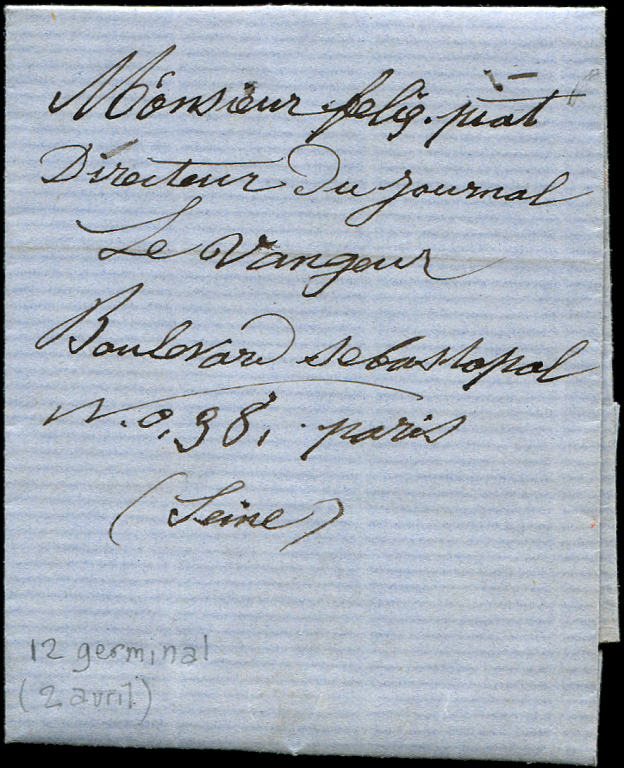 Monsieur felig. piat
Directeur Du journal
Le Vangeur
Boulevard sebastopol
N.o, 38, paris
(Seine)
12 germinal
(2 avril)